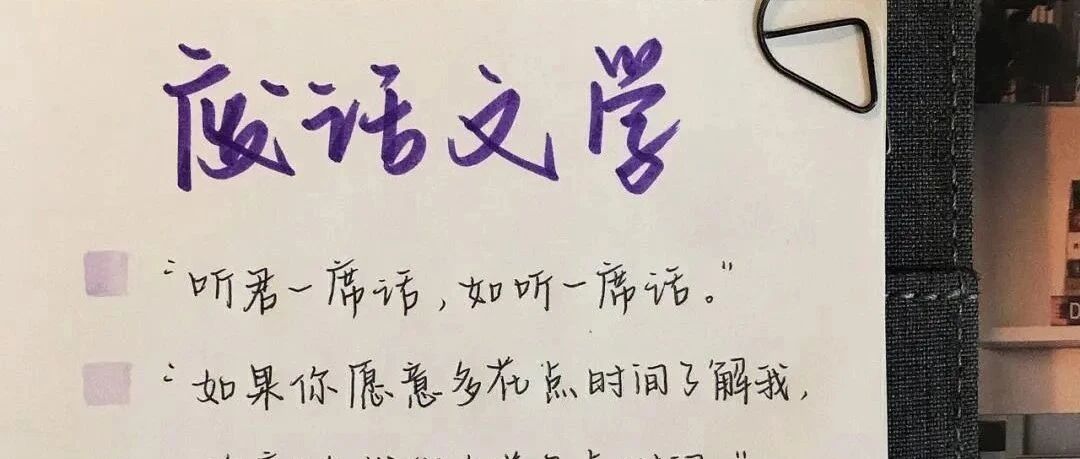 废话文学
“听君一席话，如听一席话。”
“如果你愿意多花点时间了解我，